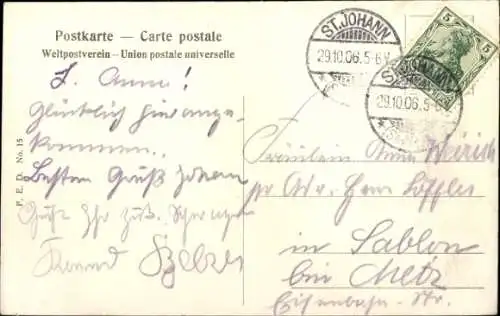 Postkarte — Carte postale
Weltpostverein – Union postale universelle
ST. JOHANN
29.10.06. 5-6
ST. JOHANN
29.10.06. 5
5 5
L. Anna!
Glücklich hier ange-
kommen.
Besten Gruß
Konrad
Fräulein Anna
pr Adr. Herrn Löffler
in Sablon
bei Metz
Eisenbahn-Str.
P. E. D. No. 15